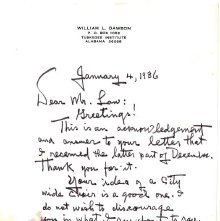 WILLIAM L. DAWSON
P. O. BOX 1052
TUSKEGEE INSTITUTE
ALABAMA 36088
January 4, 1986
Dear Mr. Law:
Greetings!
This is an acknowledgement
and answer to your letter that
I received the latter part of December.
Thank you for it.
Your idea of a City
wide Choir is a good one. I
do not wish to discourage
you in what I